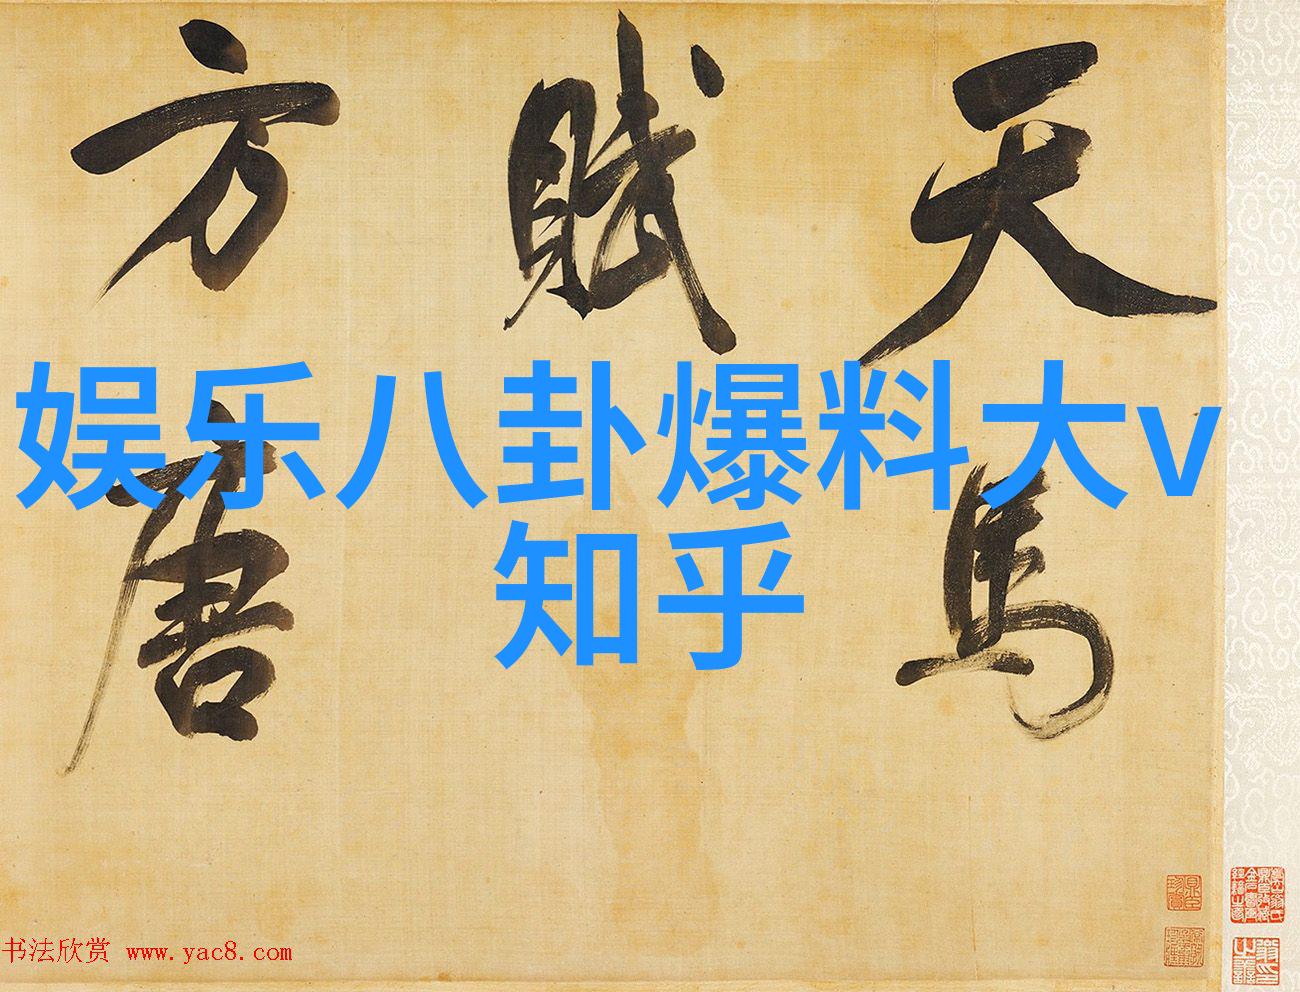 天馬
賦
方唐
娱乐八卦爆料大v
知乎
书法欣赏 www.yac8.com